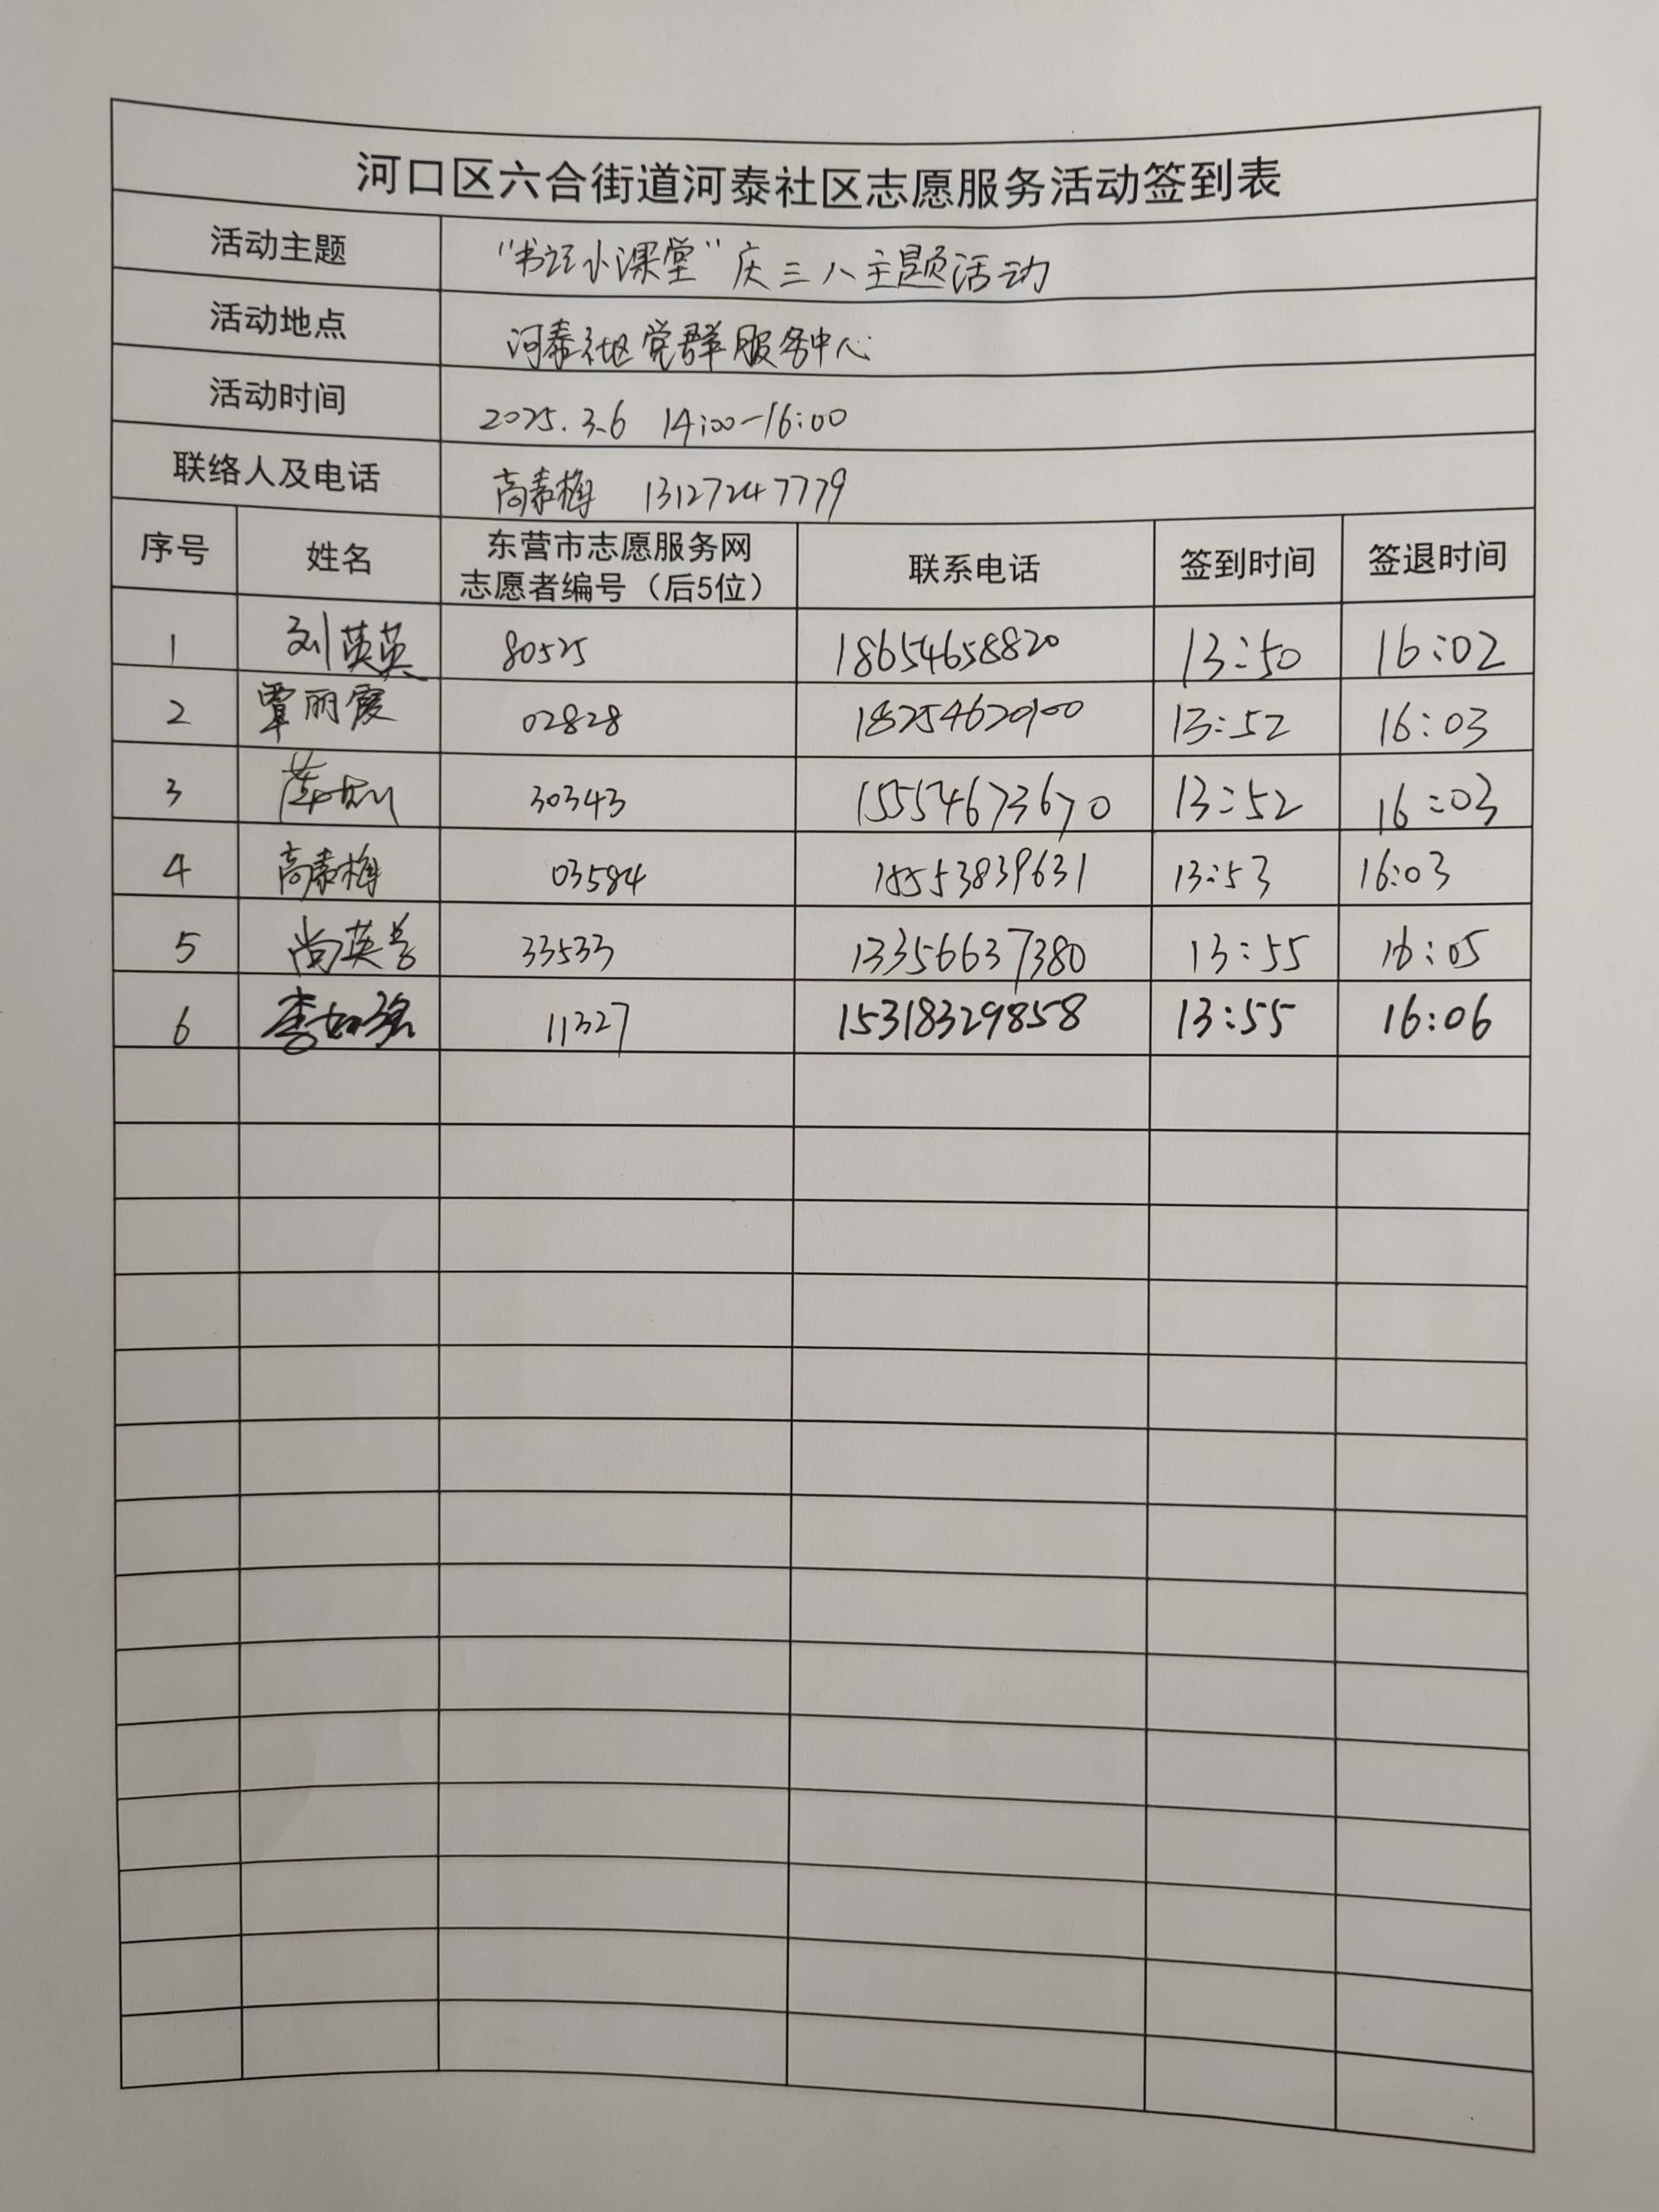 河口区六合街道河泰社区志愿服务活动签到表
活动主题 "书记小课堂"庆三八主题活动
活动地点 河泰社区党群服务中心
活动时间 2025.3.6 14:00-16:00
联络人及电话 高素梅 13127247779
序号 姓名 东营市志愿服务网 联系电话 签到时间 签退时间
志愿者编号（后5位）
1 刘英英 80525 18654658820 13:50 16:02
2 覃丽霞 02828 18254620900 13:52 16:03
3 30343 15554673670 13:52 16:03
4 高素梅 03584 18553839631 13:53 16:03
5 尚英 33533 13356637380 13:55 16:05
6 李如强 11327 15318329858 13:55 16:06